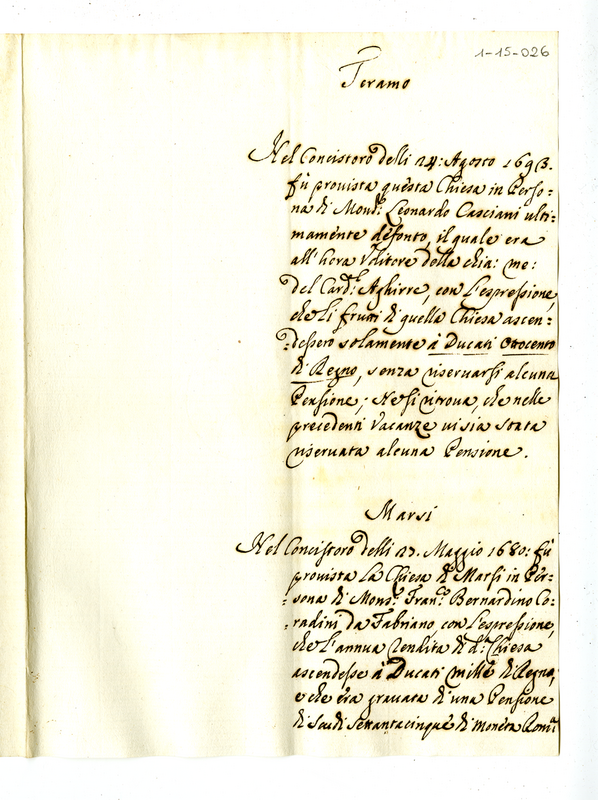 1-15-026
Teramo
Nel Concistoro delli 24: Agosto 1693.
fù provista questa Chiesa in Perso=
na di Mons.r Leonardo Casciani ulti=
mamente defonto, il quale era
all'hora Vditore della chia: me:
del Card.l Aghirre, con l'espressione,
che li frutti di quella Chiesa ascen=
=dessero solamente à Ducati Ottocento
di Regno, senza riservarsi alcuna
Pensione; Ne si ritrova, che nelle
precedenti Vacanze vi sia stata
riservata alcuna Pensione.
Marsi
Nel Concistoro delli Maggio 1680: fù
provista La Chiesa di Marsi in Per=
=sona di Mons.r Fran.co Bernardino Co=
=radini da Fabriano con l'espressione,
che l'annua Rendita di d.a Chiesa
ascendesse à Ducati mille di Regno,
e che era gravata di una Pensione
di Scudi settantacinque di moneta Rom.a